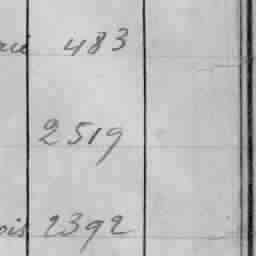 483
2519
ois 2392